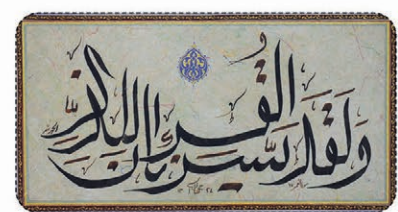 وَلَقَدْ يَسَّرْنَا الْقُرْآنَ لِلذِّكْرِ